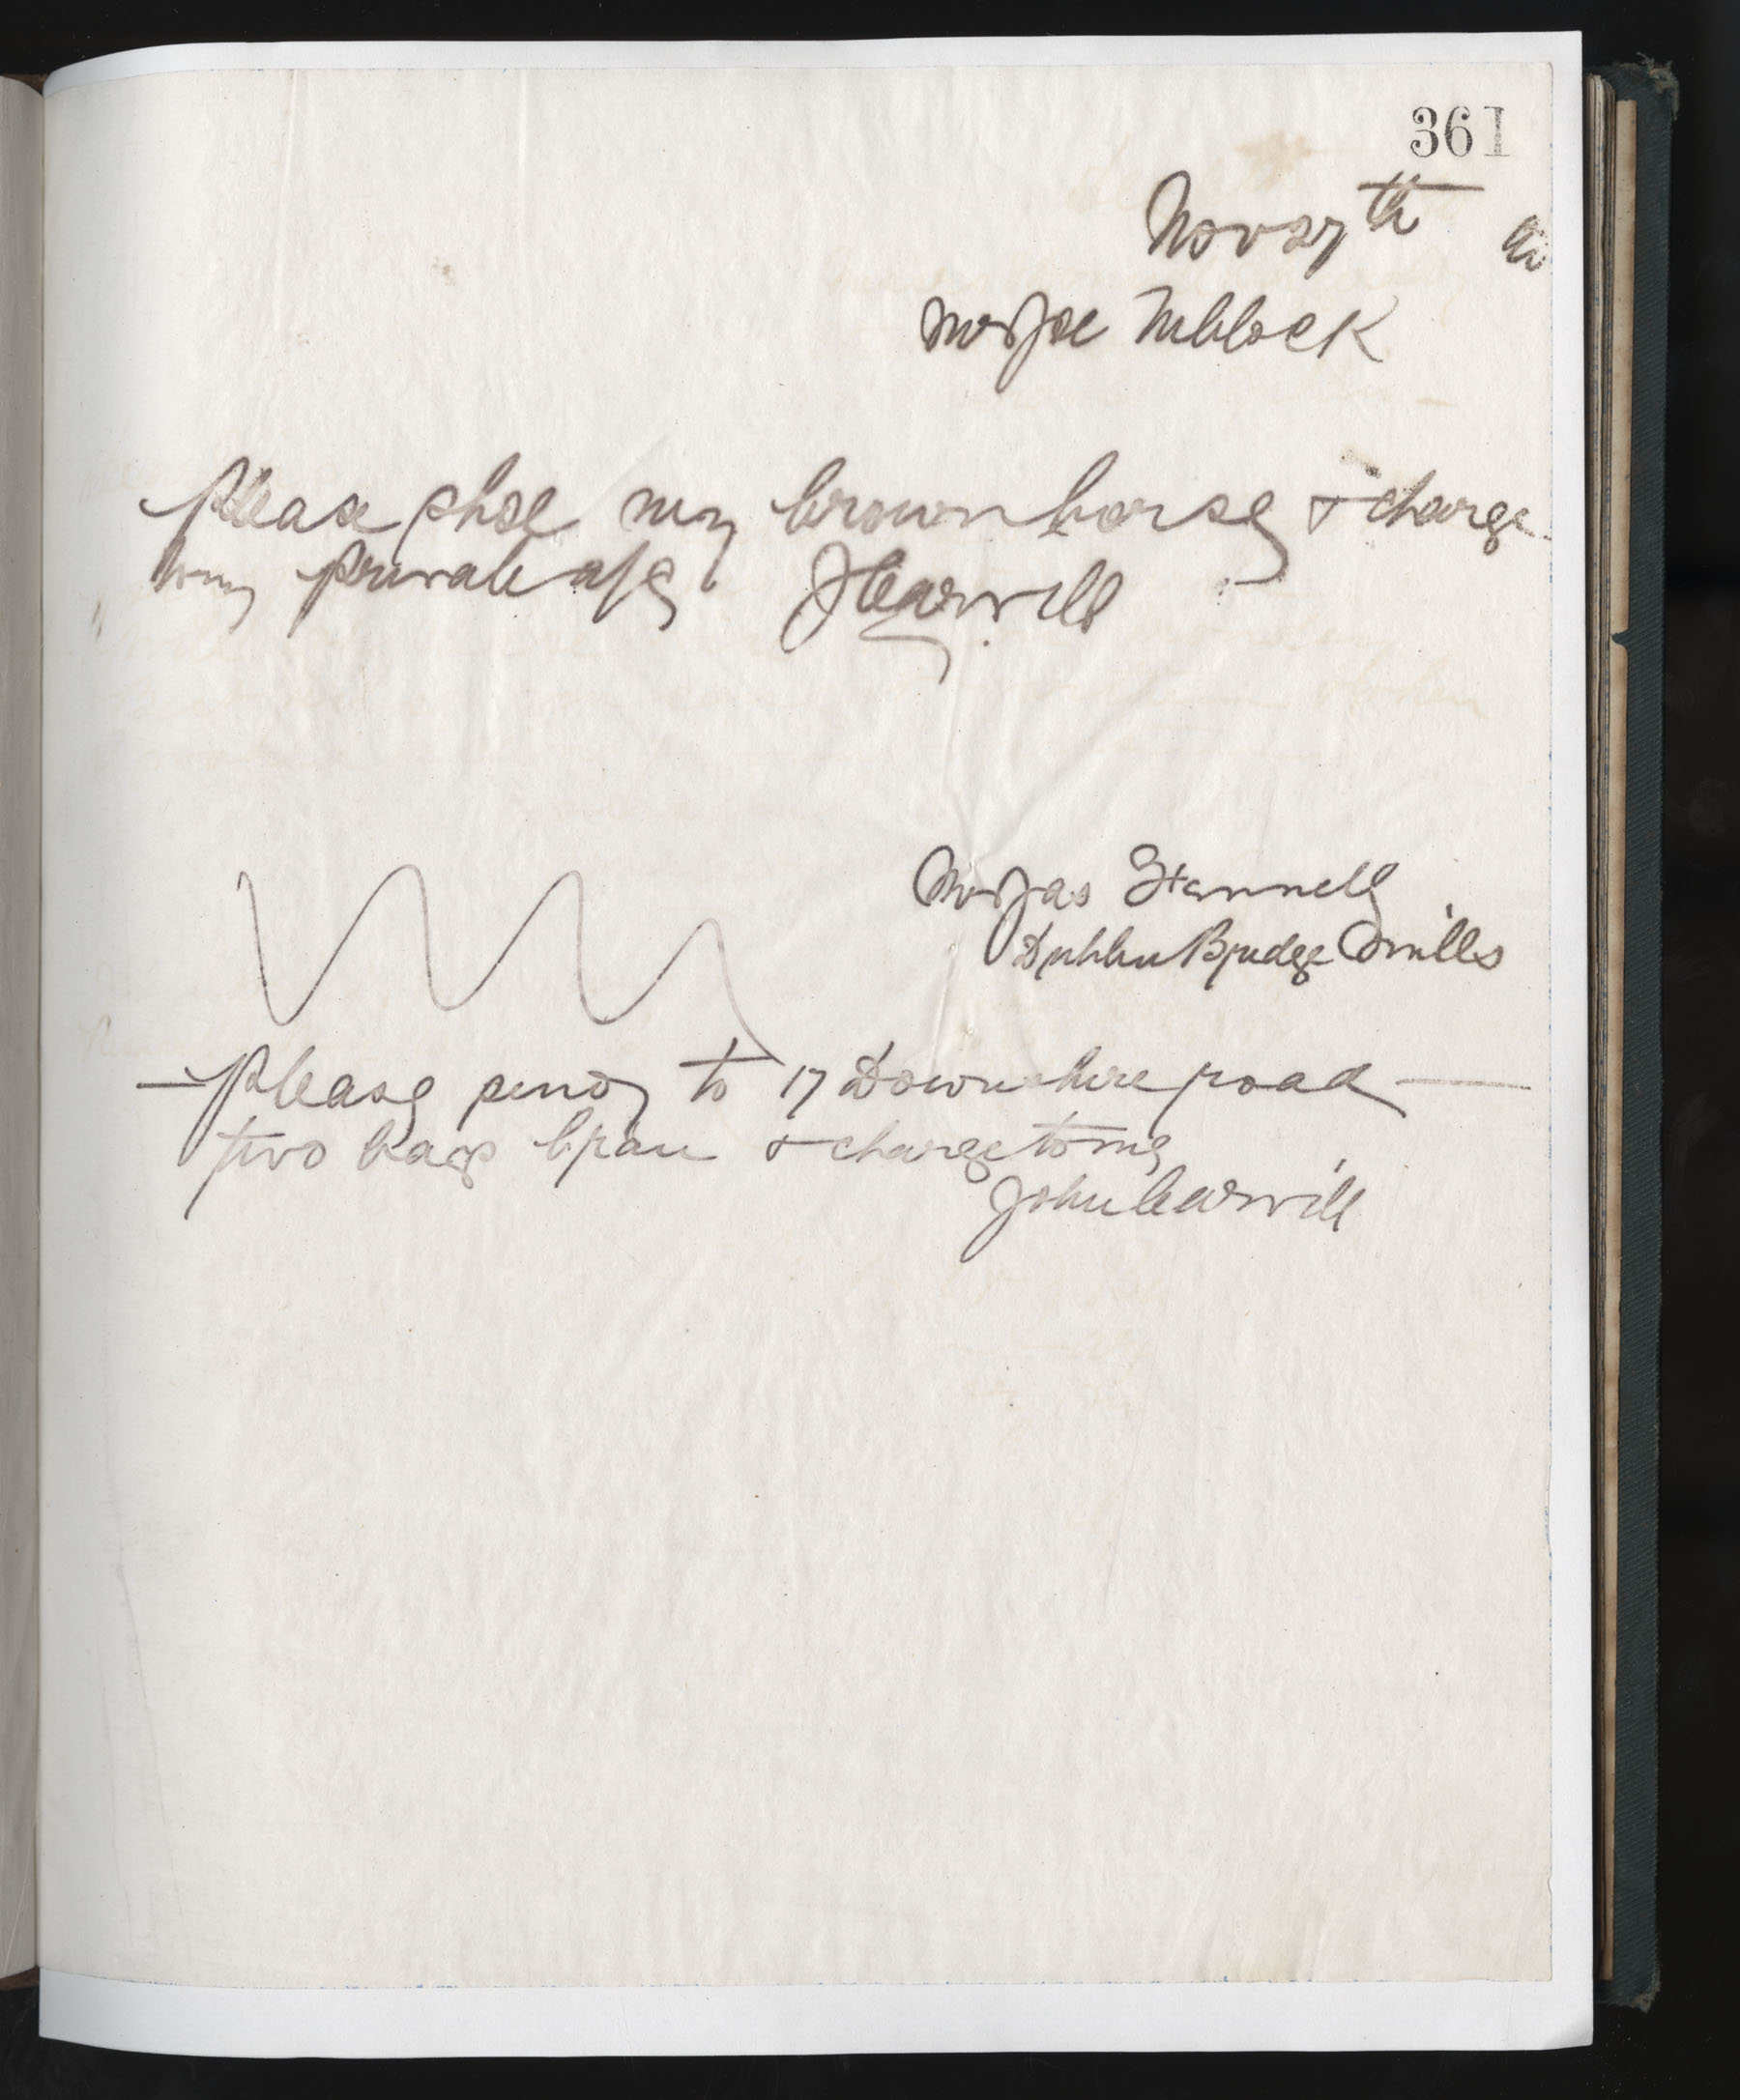 361
Nov 27th
Mr Joe
Please shoe my brown horse & charge
to my private a/c JCarvill
Mr Jas Fennell
Dublin Bridge Mills
Please send to 17 Downshire road
two bags bran & charge to me
John Carvill